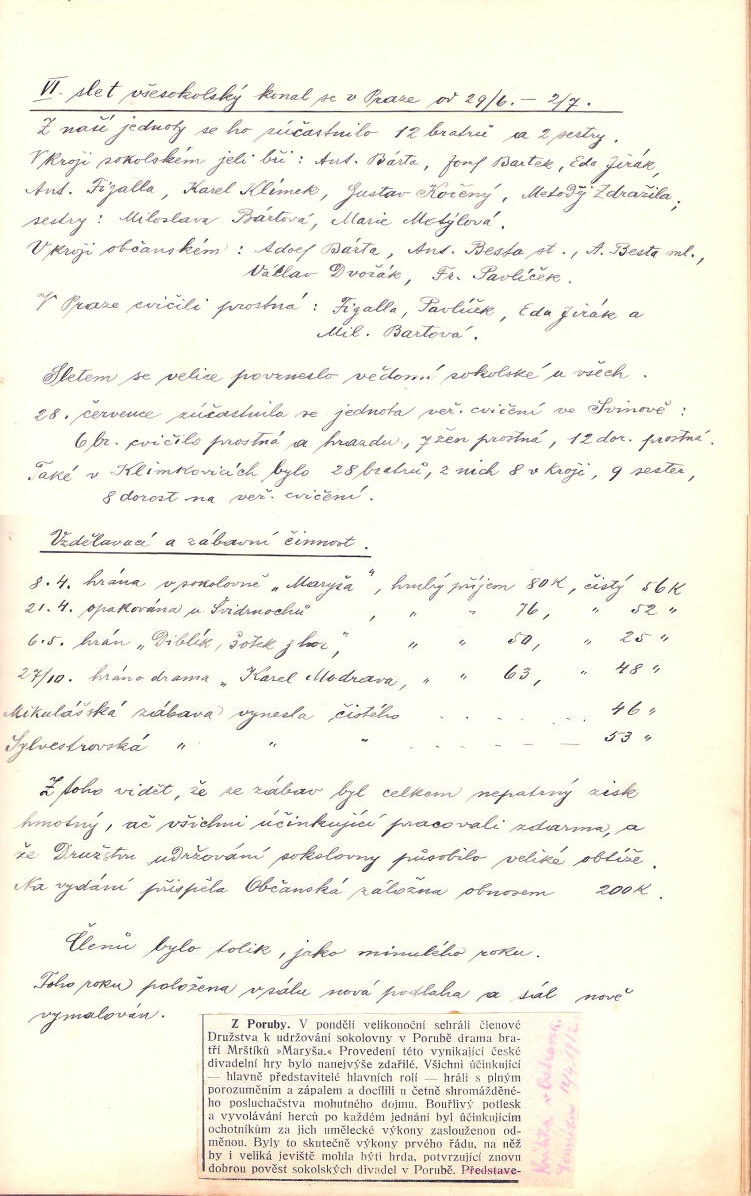 VI. slet všesokolský konal se v Praze od 29/6. – 2/7.
Z naší jednoty se ho súčastnilo 12 bratrů a 2 sestry.
V kroji sokolském jeli bří : Ant. Bárta, Josef Bartek, Eda Jirák,
Ant. Figalla, Karel Klimek, Gustav Kořený, Metoděj Zdražila;
sestry : Miloslava Bártová, Marie Motýlová.
V kroji občanském : Adolf Bárta, Ant. Besta st., A. Besta ml.,
Václav Dvořák, Fr. Pavlíček.
V Praze cvičili prostná : Figalla, Pavlíček, Eda Jirák a
Mil. Bartová.
Sletem se velice povzneslo vědomí sokolské u všech.
28. července súčastnila se jednota veř. cvičení ve Svinově :
6 br. cvičilo prostná a hrazdu, 7 žen prostná, 12 dor. prostná.
Také v Klimkovicích bylo 28 bratrů, z nich 8 v kroji, 9 sester,
8 dorost na veř. cvičení.
Vzdělavací a zábavní činnost.
8.4. hrána v sokolovně „Maryša", hrubý příjem 80 K, čistý 56 K
21.4. opakována u Švidrnochů , „ „ 76, „ 52 „
6.5. hrán „Diblík, šotek z hor", „ „ 50, „ 25 „
27/10. hráno drama „Karel Modrava, „ „ 63, „ 48 „
Mikulášská zábava vynesla čistého . . . . . . 46 „
Sylvestrovská „ „ „ . . . . – – 53 „
Z toho vidět, že ze zábav byl celkem nepatrný zisk
hmotný, ač všichni účinkující pracovali zdarma, a
že Družstvu udržování sokolovny působilo veliké obtíže.
Na vydání přispěla Občanská záložna obnosem 200 K.
Členů bylo tolik, jako minulého roku.
Toho roku položena v sálu nová podlaha a sál nově
vymalován.
Z Poruby. V pondělí velikonoční sehráli členové
Družstva k udržování sokolovny v Porubě drama bra-
tří Mrštíků »Maryša.« Provedení této vynikající české
divadelní hry bylo nanejvýše zdařilé. Všichni účinkující
— hlavně představitelé hlavních rolí — hráli s plným
porozuměním a zápalem a docílili u četně shromážděné-
ho posluchačstva mohutného dojmu. Bouřlivý potlesk
a vyvolávání herců po každém jednání byl účinkujícím
ochotníkům za jich umělecké výkony zaslouženou od-
měnou. Byly to skutečně výkony prvého řádu, na něž
by i veliká jeviště mohla býti hrda, potvrzující znovu
dobrou pověst sokolských divadel v Porubě. Představe-